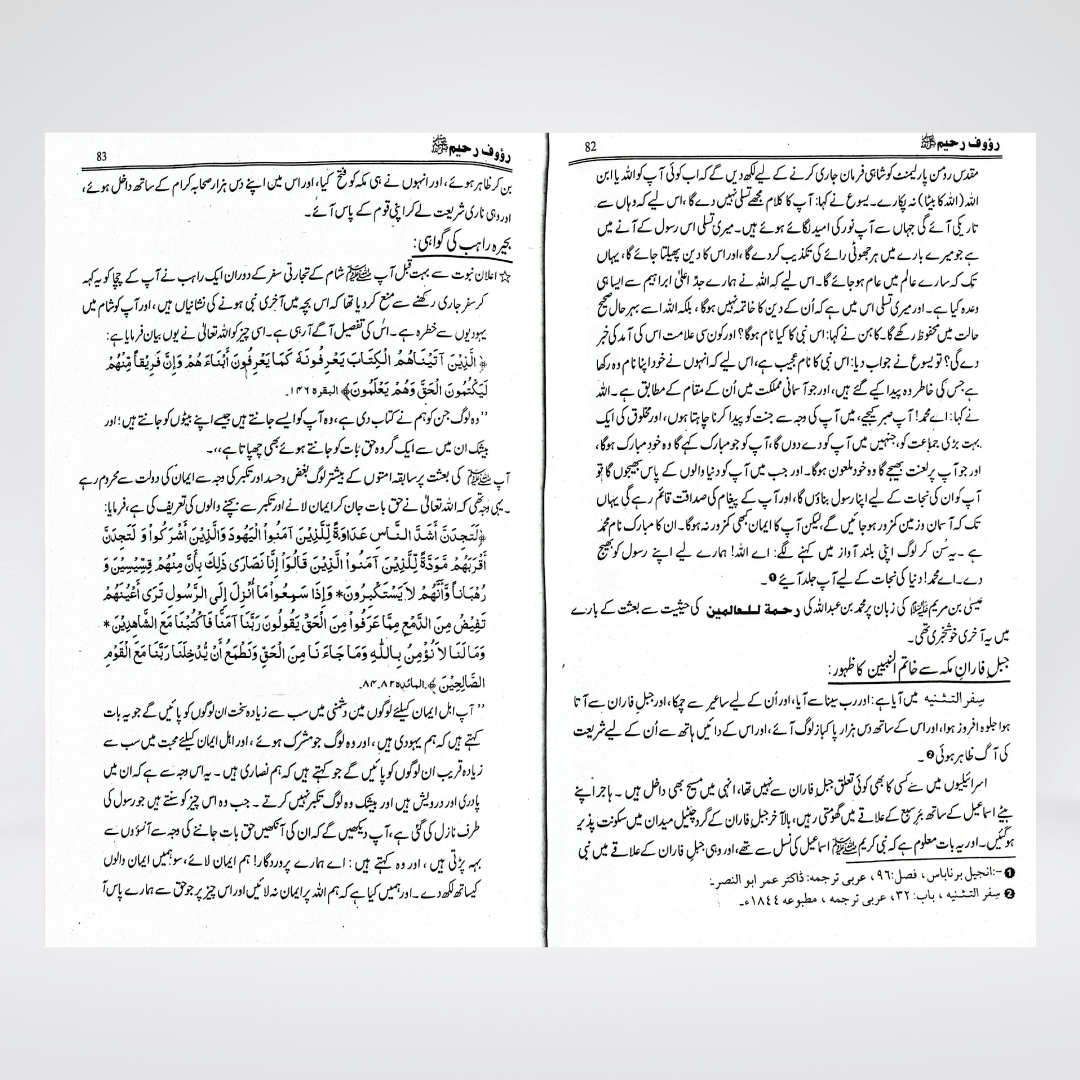 رؤوف رحیم ﷺ 82
مقدس رومن پارلیمنٹ کو شاہی فرمان جاری کرنے کے لیے لکھ دیں گے کہ اب کوئی آپ کو اللہ یا ابن
اللہ (اللہ کا بیٹا) نہ پکارے۔ یسوع نے کہا: آپ کا کلام مجھے تسلی نہیں دے گا، اس لیے کہ وہاں سے
تاریکی آئے گی جہاں سے آپ نور کی امید لگائے ہوئے ہیں۔ میری تسلی اس رسول کے آنے میں
ہے جو میرے بارے میں ہر جھوٹی رائے کی تکذیب کر دے گا، اور اس کا دین پھیلتا جائے گا، یہاں
تک کہ سارے عالم میں عام ہو جائے گا۔ اس لیے کہ اللہ نے ہمارے جدِّ اعلیٰ ابراہیم سے ایسا ہی
وعدہ کیا ہے۔ اور میری تسلی اس میں ہے کہ اُن کے دین کا خاتمہ نہیں ہوگا، بلکہ اللہ اسے بہرحال صحیح
حالت میں محفوظ رکھے گا۔ کاہن نے کہا: اس نبی کا کیا نام ہوگا؟ اور کون سی علامت اس کی آمد کی خبر
دے گی؟ تو یسوع نے جواب دیا: اس نبی کا نام عجیب ہے، اس لیے کہ انہوں نے خود اپنا نام وہ رکھا
ہے جس کی خاطر وہ پیدا کیے گئے ہیں، اور جو آسمانی مملکت میں اُن کے مقام کے مطابق ہے۔ اللہ
نے کہا: اے محمد! آپ صبر کیجیے، میں آپ کی وجہ سے جنت کو پیدا کرنا چاہتا ہوں، اور مخلوق کی ایک
بہت بڑی جماعت کو، جنہیں میں آپ کو دے دوں گا، آپ کو جو مبارک کہے گا وہ خود مبارک ہوگا،
اور جو آپ پر لعنت بھیجے گا وہ خود ملعون ہوگا۔ اور جب میں آپ کو دنیا والوں کے پاس بھیجوں گا تو
آپ کو ان کی نجات کے لیے اپنا رسول بناؤں گا، اور آپ کے پیغام کی صداقت قائم رہے گی یہاں
تک کہ آسمان و زمین کمزور ہو جائیں گے، لیکن آپ کا ایمان کبھی کمزور نہ ہوگا۔ ان کا مبارک نام محمد
ہے۔ یہ سُن کر لوگ اپنی بلند آواز میں کہنے لگے: اے اللہ! ہمارے لیے اپنے رسول کو بھیج
دے۔ اے محمد! دنیا کی نجات کے لیے آپ جلد آئیے ❶۔
عیسیٰ بن مریم علیہ السلام کی زبان پر محمد بن عبداللہ کی رحمة للعالمین کی حیثیت سے بعثت کے بارے
میں یہ آخری خوشخبری تھی۔
جبلِ فارانِ مکہ سے خاتم النبیین کا ظہور:
سِفر التثنیه میں آیا ہے: اور رب سینا سے آیا، اور اُن کے لیے ساعیر سے چمکا، اور جبلِ فاران سے آتا
ہوا جلوہ افروز ہوا، اور اس کے ساتھ دس ہزار پاکباز لوگ آئے، اور اس کے دائیں ہاتھ سے اُن کے لیے شریعت
کی آگ ظاہر ہوئی ❷۔
اسرائیلیوں میں سے کسی کا بھی کوئی تعلق جبلِ فاران سے نہیں تھا، انہی میں مسیح بھی داخل ہیں۔ ہاجر اپنے
بیٹے اسماعیل کے ساتھ بئر سبع کے علاقے میں گھومتی رہیں، بالآخر جبلِ فاران کے گرد چٹیل میدان میں سکونت پذیر
ہوگئیں۔ اور یہ بات معلوم ہے کہ نبی کریم ﷺ اسماعیل کی نسل سے تھے، اور وہی جبلِ فاران کے علاقے میں نبی
❶ -: انجیل برناباس، فصل: ۹۶، عربی ترجمہ: ڈاکٹر عمر ابو النصر۔
❷ سِفر التثنیہ، باب: ۳۲، عربی ترجمہ، مطبوعہ ۱۸۴۴ء۔
رؤوف رحیم ﷺ 83
بن کر ظاہر ہوئے، اور انہوں نے ہی مکہ کو فتح کیا، اور اس میں اپنے دس ہزار صحابہ کرام کے ساتھ داخل ہوئے،
اور وہی ناری شریعت لے کر اپنی قوم کے پاس آئے۔
بحیرہ راہب کی گواہی:
☆ اعلان نبوت سے بہت قبل آپ ﷺ شام کے تجارتی سفر کے دوران ایک راہب نے آپ کے چچا کو یہ کہہ
کر سفر جاری رکھنے سے منع کر دیا تھا کہ اس بچہ میں آخری نبی ہونے کی نشانیاں ہیں، اور آپ کو شام میں
یہودیوں سے خطرہ ہے۔ اس کی تفصیل آگے آ رہی ہے۔ اسی چیز کو اللہ تعالیٰ نے یوں بیان فرمایا ہے:
﴿الَّذِينَ آتَيْنَاهُمُ الْكِتَابَ يَعْرِفُونَهُ كَمَا يَعْرِفُونَ أَبْنَاءَ هُمْ وَإِنَّ فَرِيقاً مِّنْهُمْ
لَيَكْتُمُونَ الْحَقَّ وَهُمْ يَعْلَمُونَ﴾ البقرہ ۱۴۶۔
’’وہ لوگ جن کو ہم نے کتاب دی ہے، وہ آپ کو ایسے جانتے ہیں جیسے اپنے بیٹوں کو جانتے ہیں؛ اور
بیشک ان میں سے ایک گروہ حق بات کو جانتے ہوئے بھی چھپاتا ہے‘‘۔
آپ ﷺ کی بعثت پر سابقہ امتوں کے بیشتر لوگ بغض و حسد اور تکبر کی وجہ سے ایمان کی دولت سے محروم رہے
۔ یہی وجہ تھی کہ اللہ تعالیٰ نے حق بات جان کر ایمان لانے اور تکبر سے بچنے والوں کی تعریف کی ہے، فرمایا:
﴿لَتَجِدَنَّ أَشَدَّ النَّاسِ عَدَاوَةً لِّلَّذِينَ آمَنُوا الْيَهُودَ وَالَّذِينَ أَشْرَكُوا وَ لَتَجِدَنَّ
أَقْرَبَهُمْ مَّوَدَّةً لِّلَّذِينَ آمَنُوا الَّذِينَ قَالُوَا إِنَّا نَصَارَى ذَلِكَ بِأَنَّ مِنْهُمْ قِسِّيسِينَ وَ
رُهْبَاناً وَّأَنَّهُمْ لاَ يَسْتَكْبِرُونَ* وَإِذَا سَمِعُوا مَا أُنْزِلَ إِلَى الرَّسُولِ تَرَى أَعْيُنَهُمْ
تَفِيضُ مِنَ الدَّمْعِ مِمَّا عَرَفُوا مِنَ الْحَقِّ يَقُولُونَ رَبَّنَا آمَنَّا فَاكْتُبْنَا مَعَ الشَّاهِدِينَ*
وَمَا لَنَا لاَ نُؤْمِنُ بِاللَّهِ وَمَا جَاءَ نَا مِنَ الْحَقِّ وَنَطْمَعُ أَنْ يُدْخِلَنَا رَبَّنَا مَعَ الْقَوْمِ
الصَّالِحِيْنَ﴾۔ المائدہ ۸۲۔۸۴۔
’’آپ اہل ایمان کیلئے لوگوں میں دشمنی میں سب سے زیادہ سخت ان لوگوں کو پائیں گے جو یہ بات
کہتے ہیں کہ ہم یہودی ہیں، اور وہ لوگ جو مشرک ہوئے، اور اہل ایمان کیلئے محبت میں سب سے
زیادہ قریب ان لوگوں کو پائیں گے جو کہتے ہیں کہ ہم نصاریٰ ہیں۔ یہ اس وجہ سے ہے کہ ان میں
پادری اور درویش ہیں اور بیشک وہ لوگ تکبر نہیں کرتے۔ جب وہ اس چیز کو سنتے ہیں جو رسول کی
طرف نازل کی گئی ہے، آپ دیکھیں گے کہ ان کی آنکھیں حق بات جاننے کی وجہ سے آنسوؤں سے
بہہ پڑتی ہیں، اور وہ کہتے ہیں: اے ہمارے پروردگار! ہم ایمان لائے، سو ہمیں ایمان والوں
کیساتھ لکھ دے۔ اور ہمیں کیا ہے کہ ہم اللہ پر ایمان نہ لائیں اور اس چیز پر جو حق سے ہمارے پاس آ